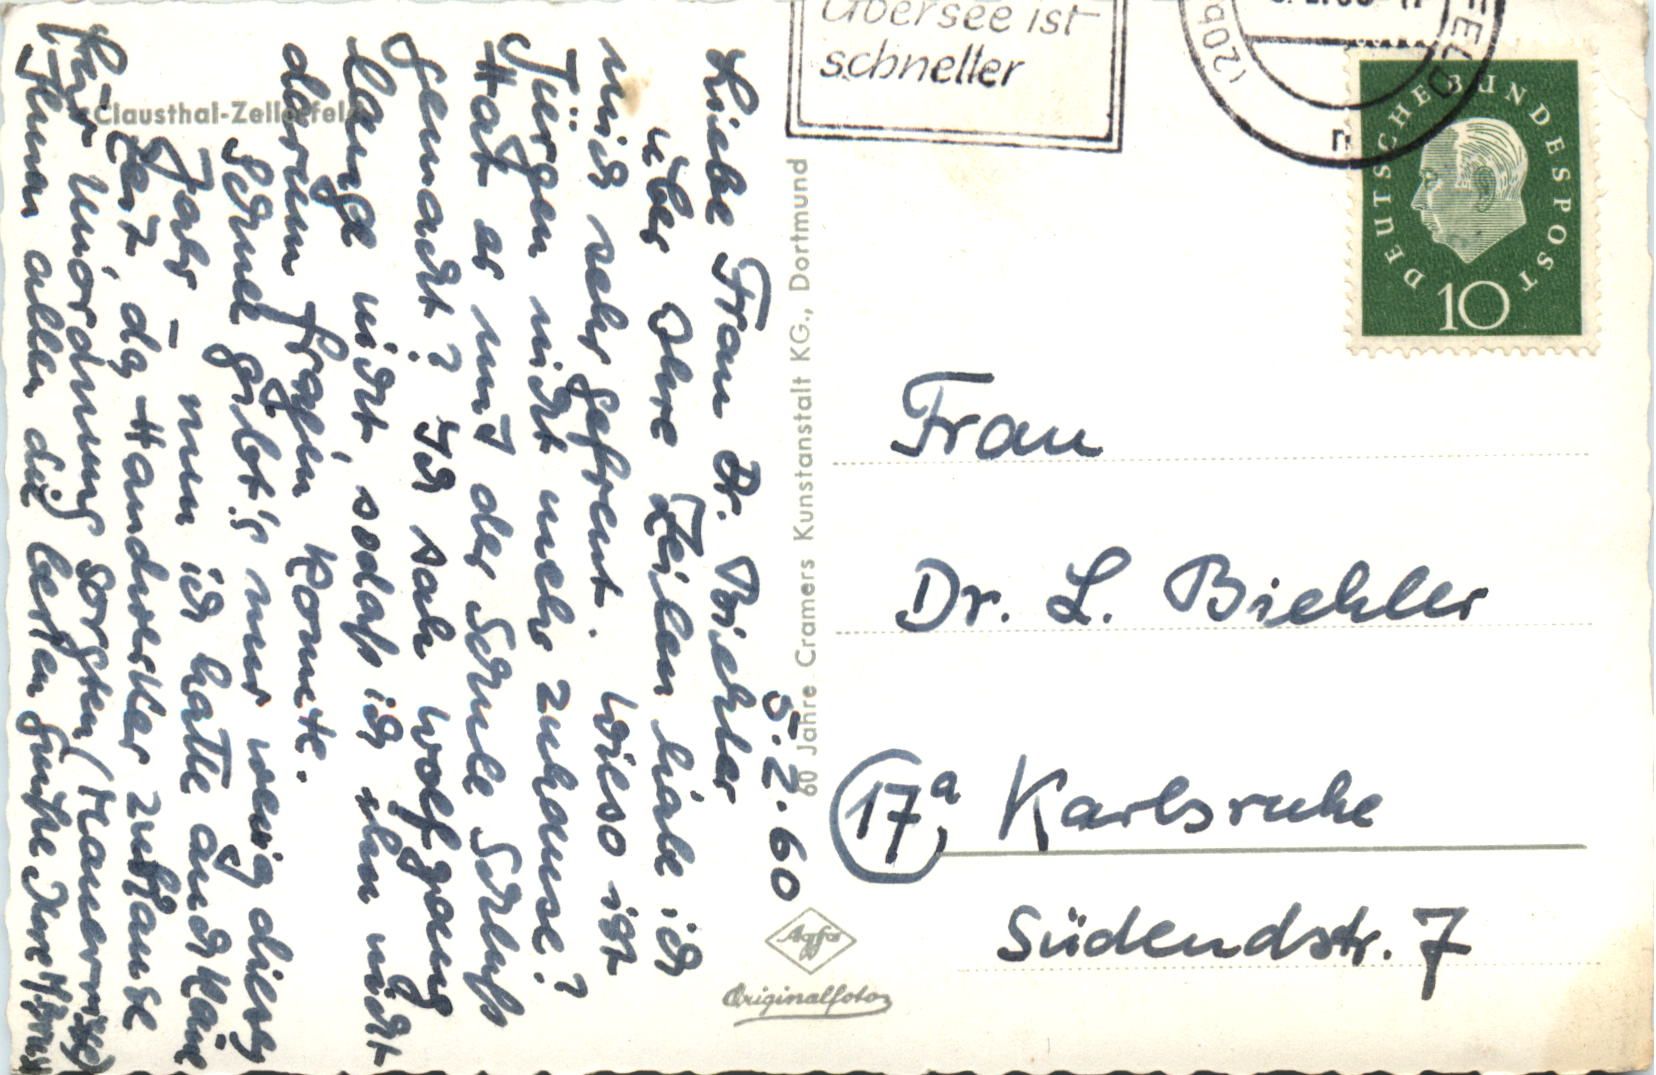 Clausthal-Zellerfeld
5.2.60
Liebe Frau Dr. Biehler
über Ihre Zeilen habe ich
mich sehr gefreut. Wieso ist
Jürgen nicht mehr zuhause?
Hat er mit der Schule Schluß
gemacht? Ich sah Wolfgang
lange nicht, sodaß ich ihn nicht
darum fragen konnte.
Schnee gibt's nur wenig dieses
Jahr – nun ich hatte auch keine
Zeit, da Handwerker zuhause
für Unordnung sorgten (Mauerrisse)
Ihnen allen die besten Grüße Ihre
60 Jahre Cramers Kunstanstalt KG., Dortmund
Agfa
Originalfoto
Übersee ist
schneller
(20b
FELD
DEUTSCHE BUNDESPOST
10
Frau
Dr. L. Biehler
17a Karlsruhe
Südendstr. 7